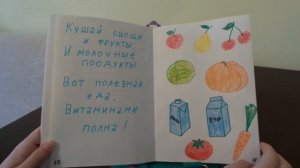 Кушай овощи
и фрукты
И молочные
продукты
Вот полезная
еда,
Витаминами
полна!
10